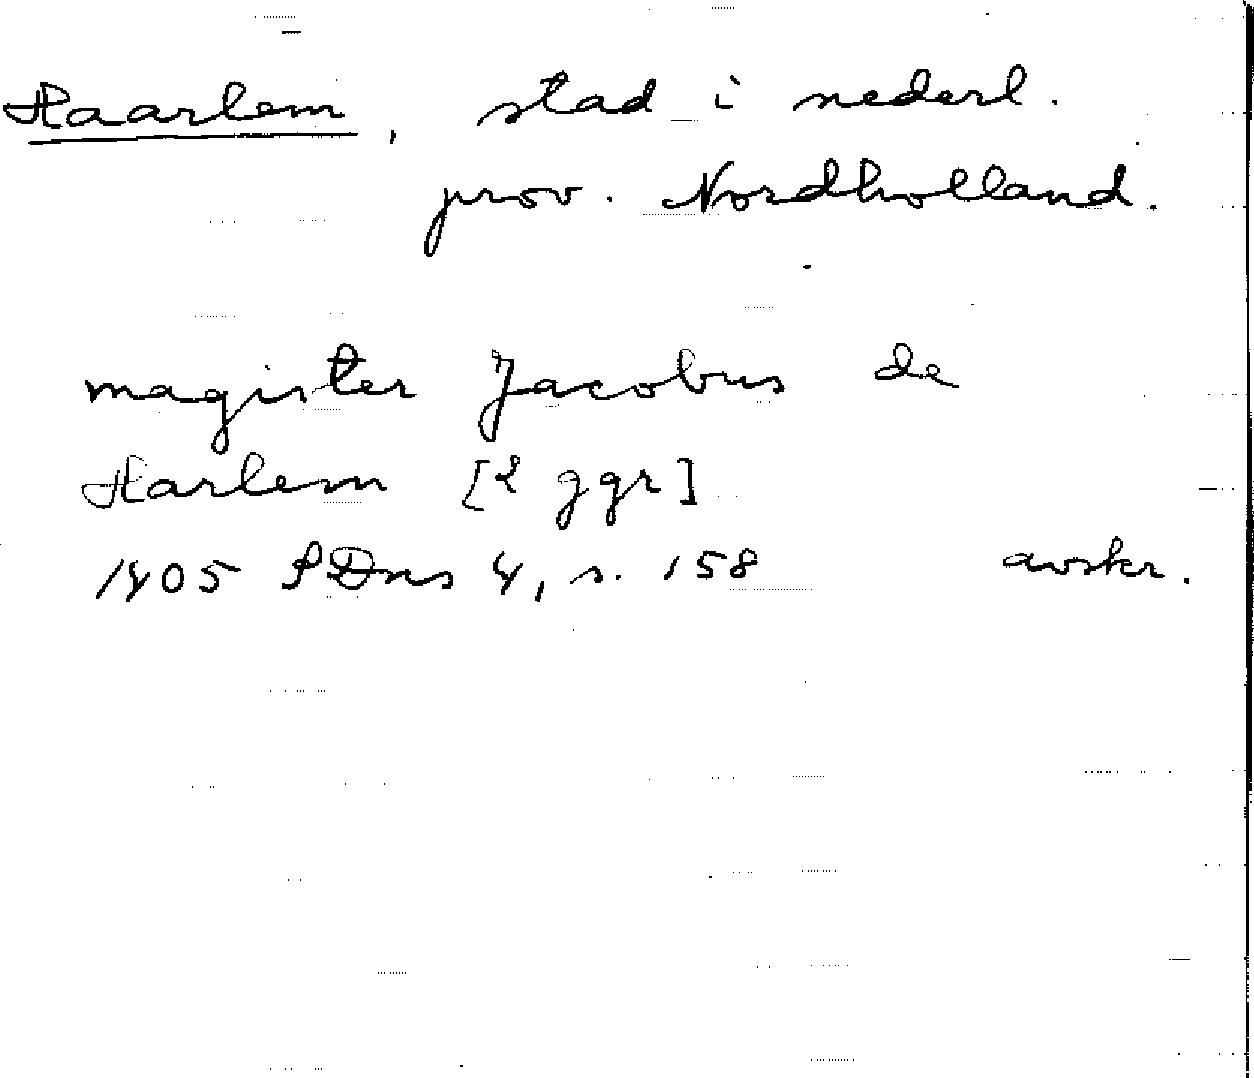 Haarlem, stad i nederl.
prov. Nordholland.
magister Jacobus de
Harlem [2 ggr]
1405 SDns 4, s. 158 avskr.